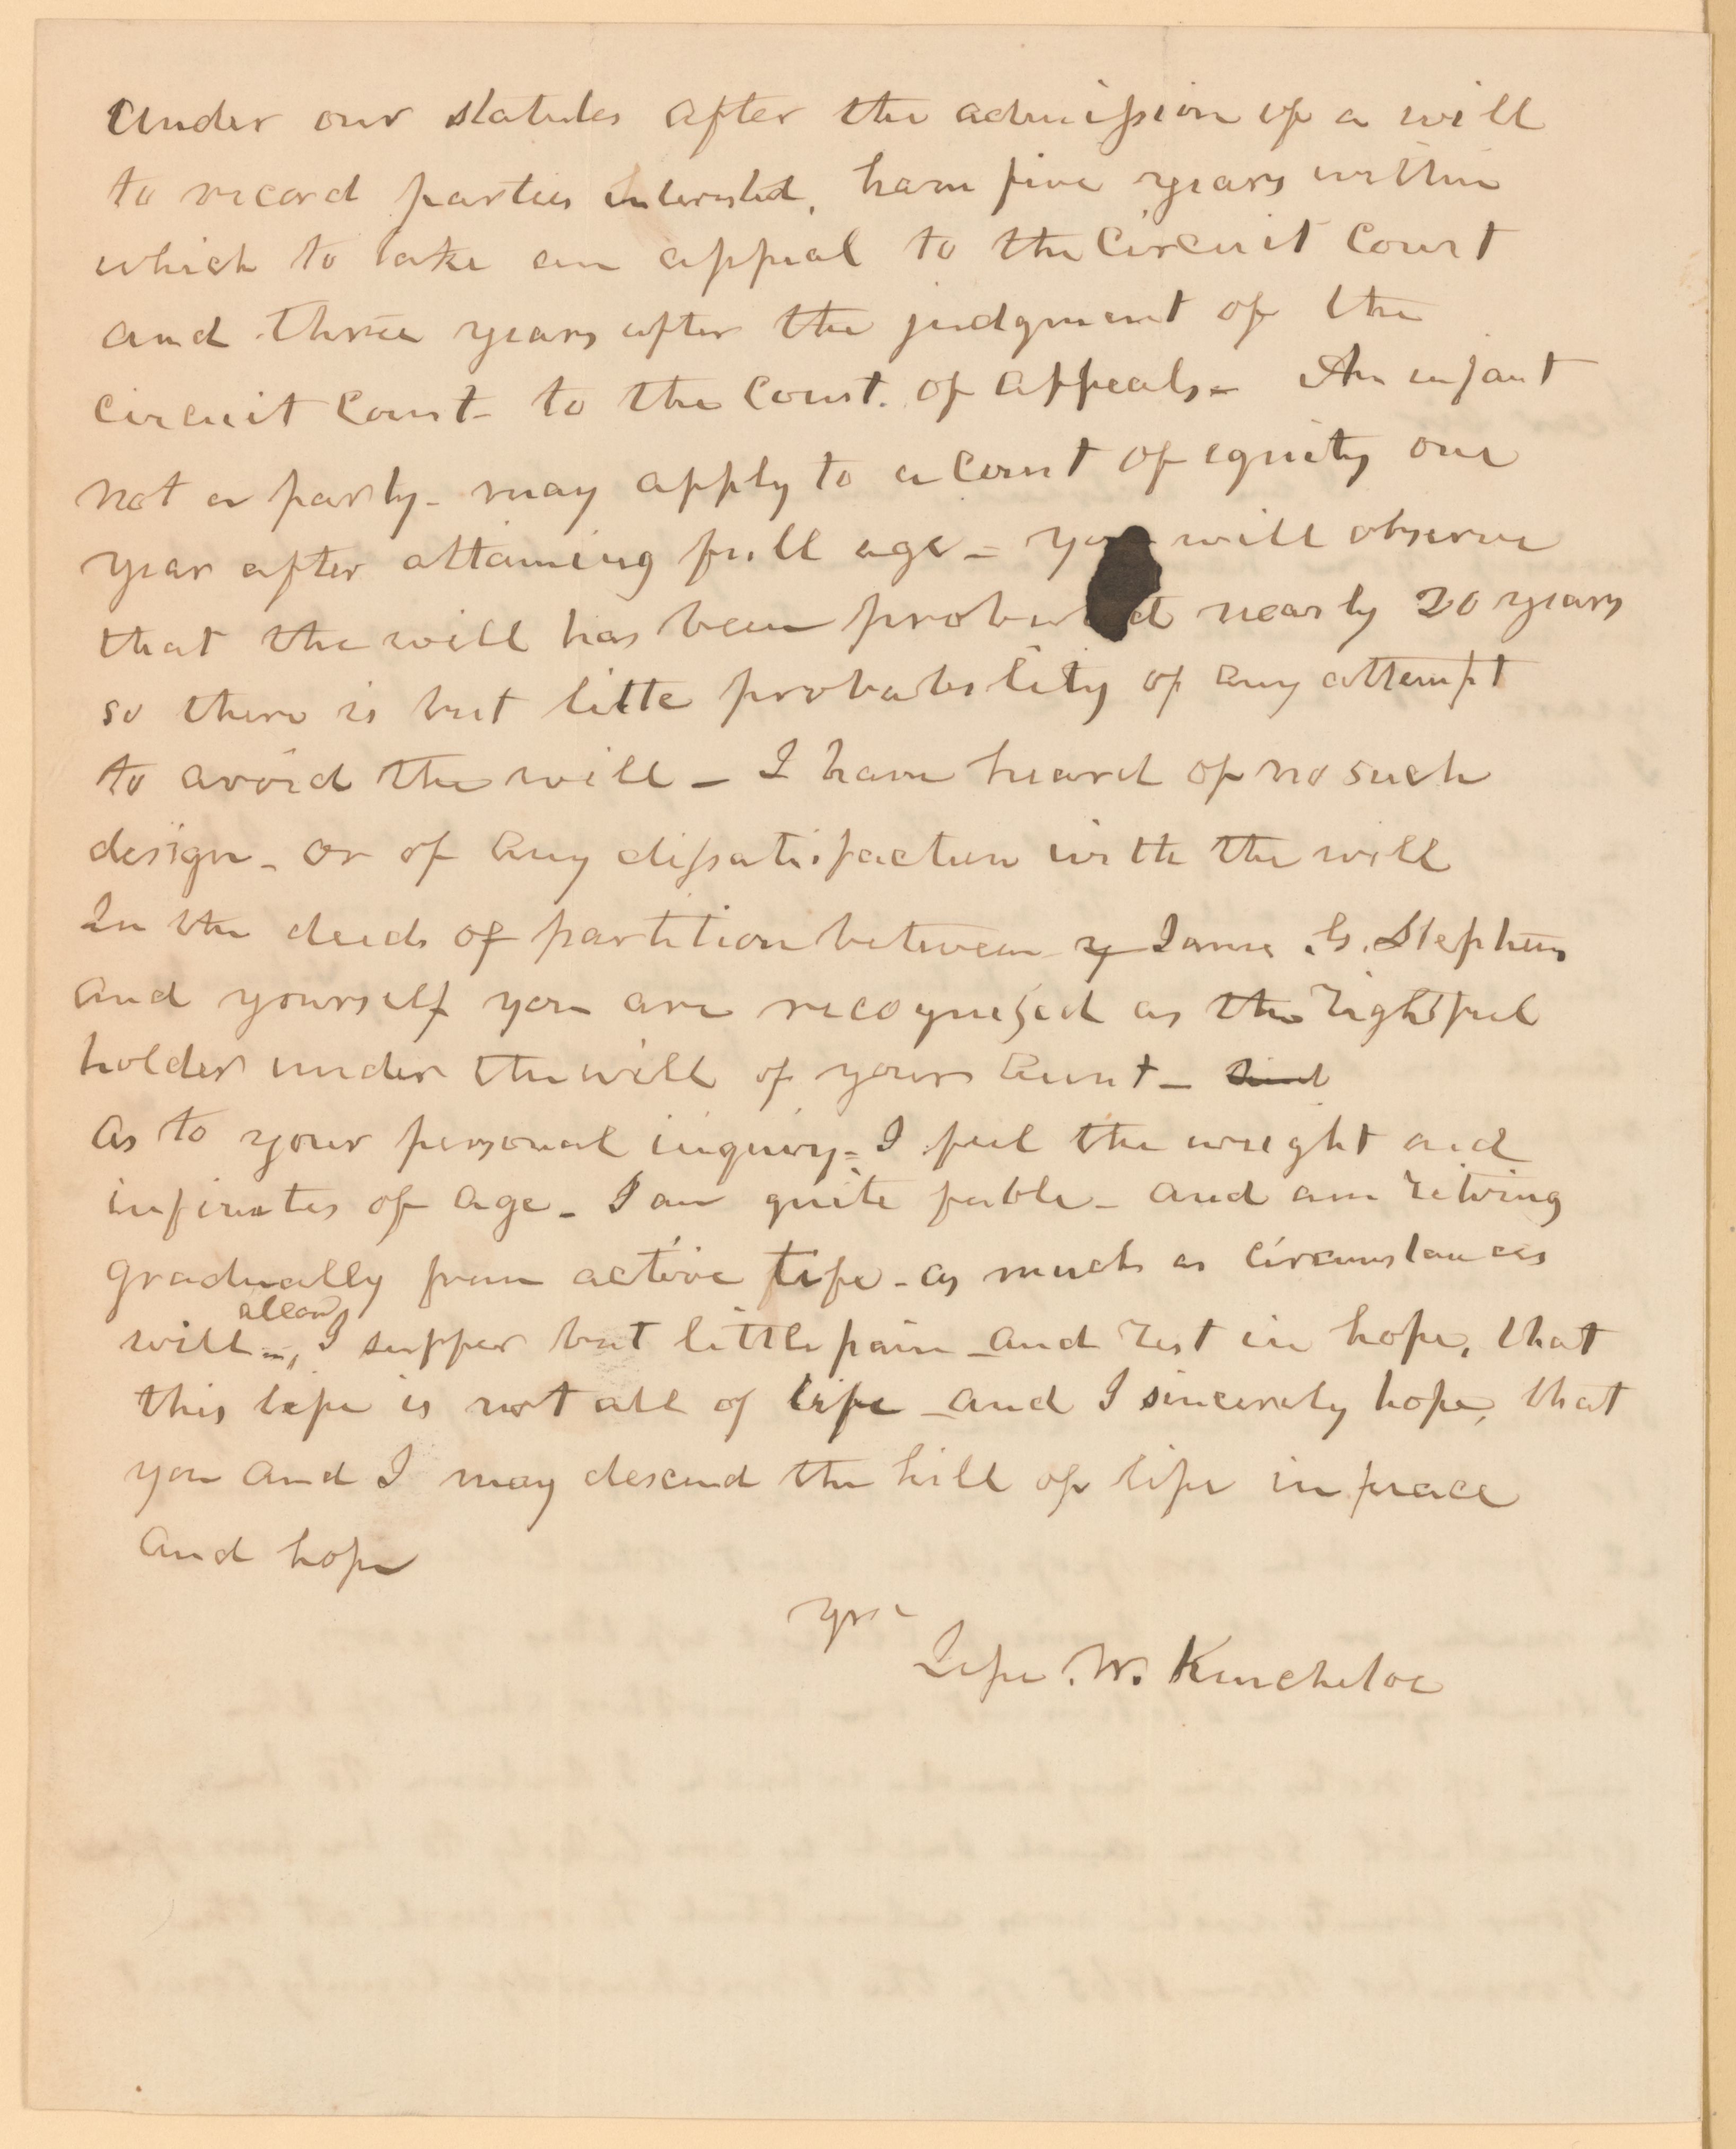 Under our statutes after the admission of a will
to record parties interested, have five years within
which to take an appeal to the Circuit Court
and three years after the judgment of the
circuit Court to the Court of Appeals - An infant
not a party - may apply to a Court of equity one
year after attaining full age - you will observe
that the will has been probated nearly 20 years
so there is but litte probability of any attempt
to avoid the will - I have heard of no such
design - or of any dissatisfaction with the will
In the deeds of partition between Stephens
and yourself you are recognized as the rightful
holder under the will of your Aunt -
As to your personal inquiry - I feel the weight and
of age - I am quite feeble - and am retiring
gradually from active life - as much as circumstances
will allow, I suffer but little pain - and rest in hope, that
this life is not all of life - and I sincerely hope, that
you and I may descend the hill of life in peace
and hope
yrs
Jesse W. Kincheloe